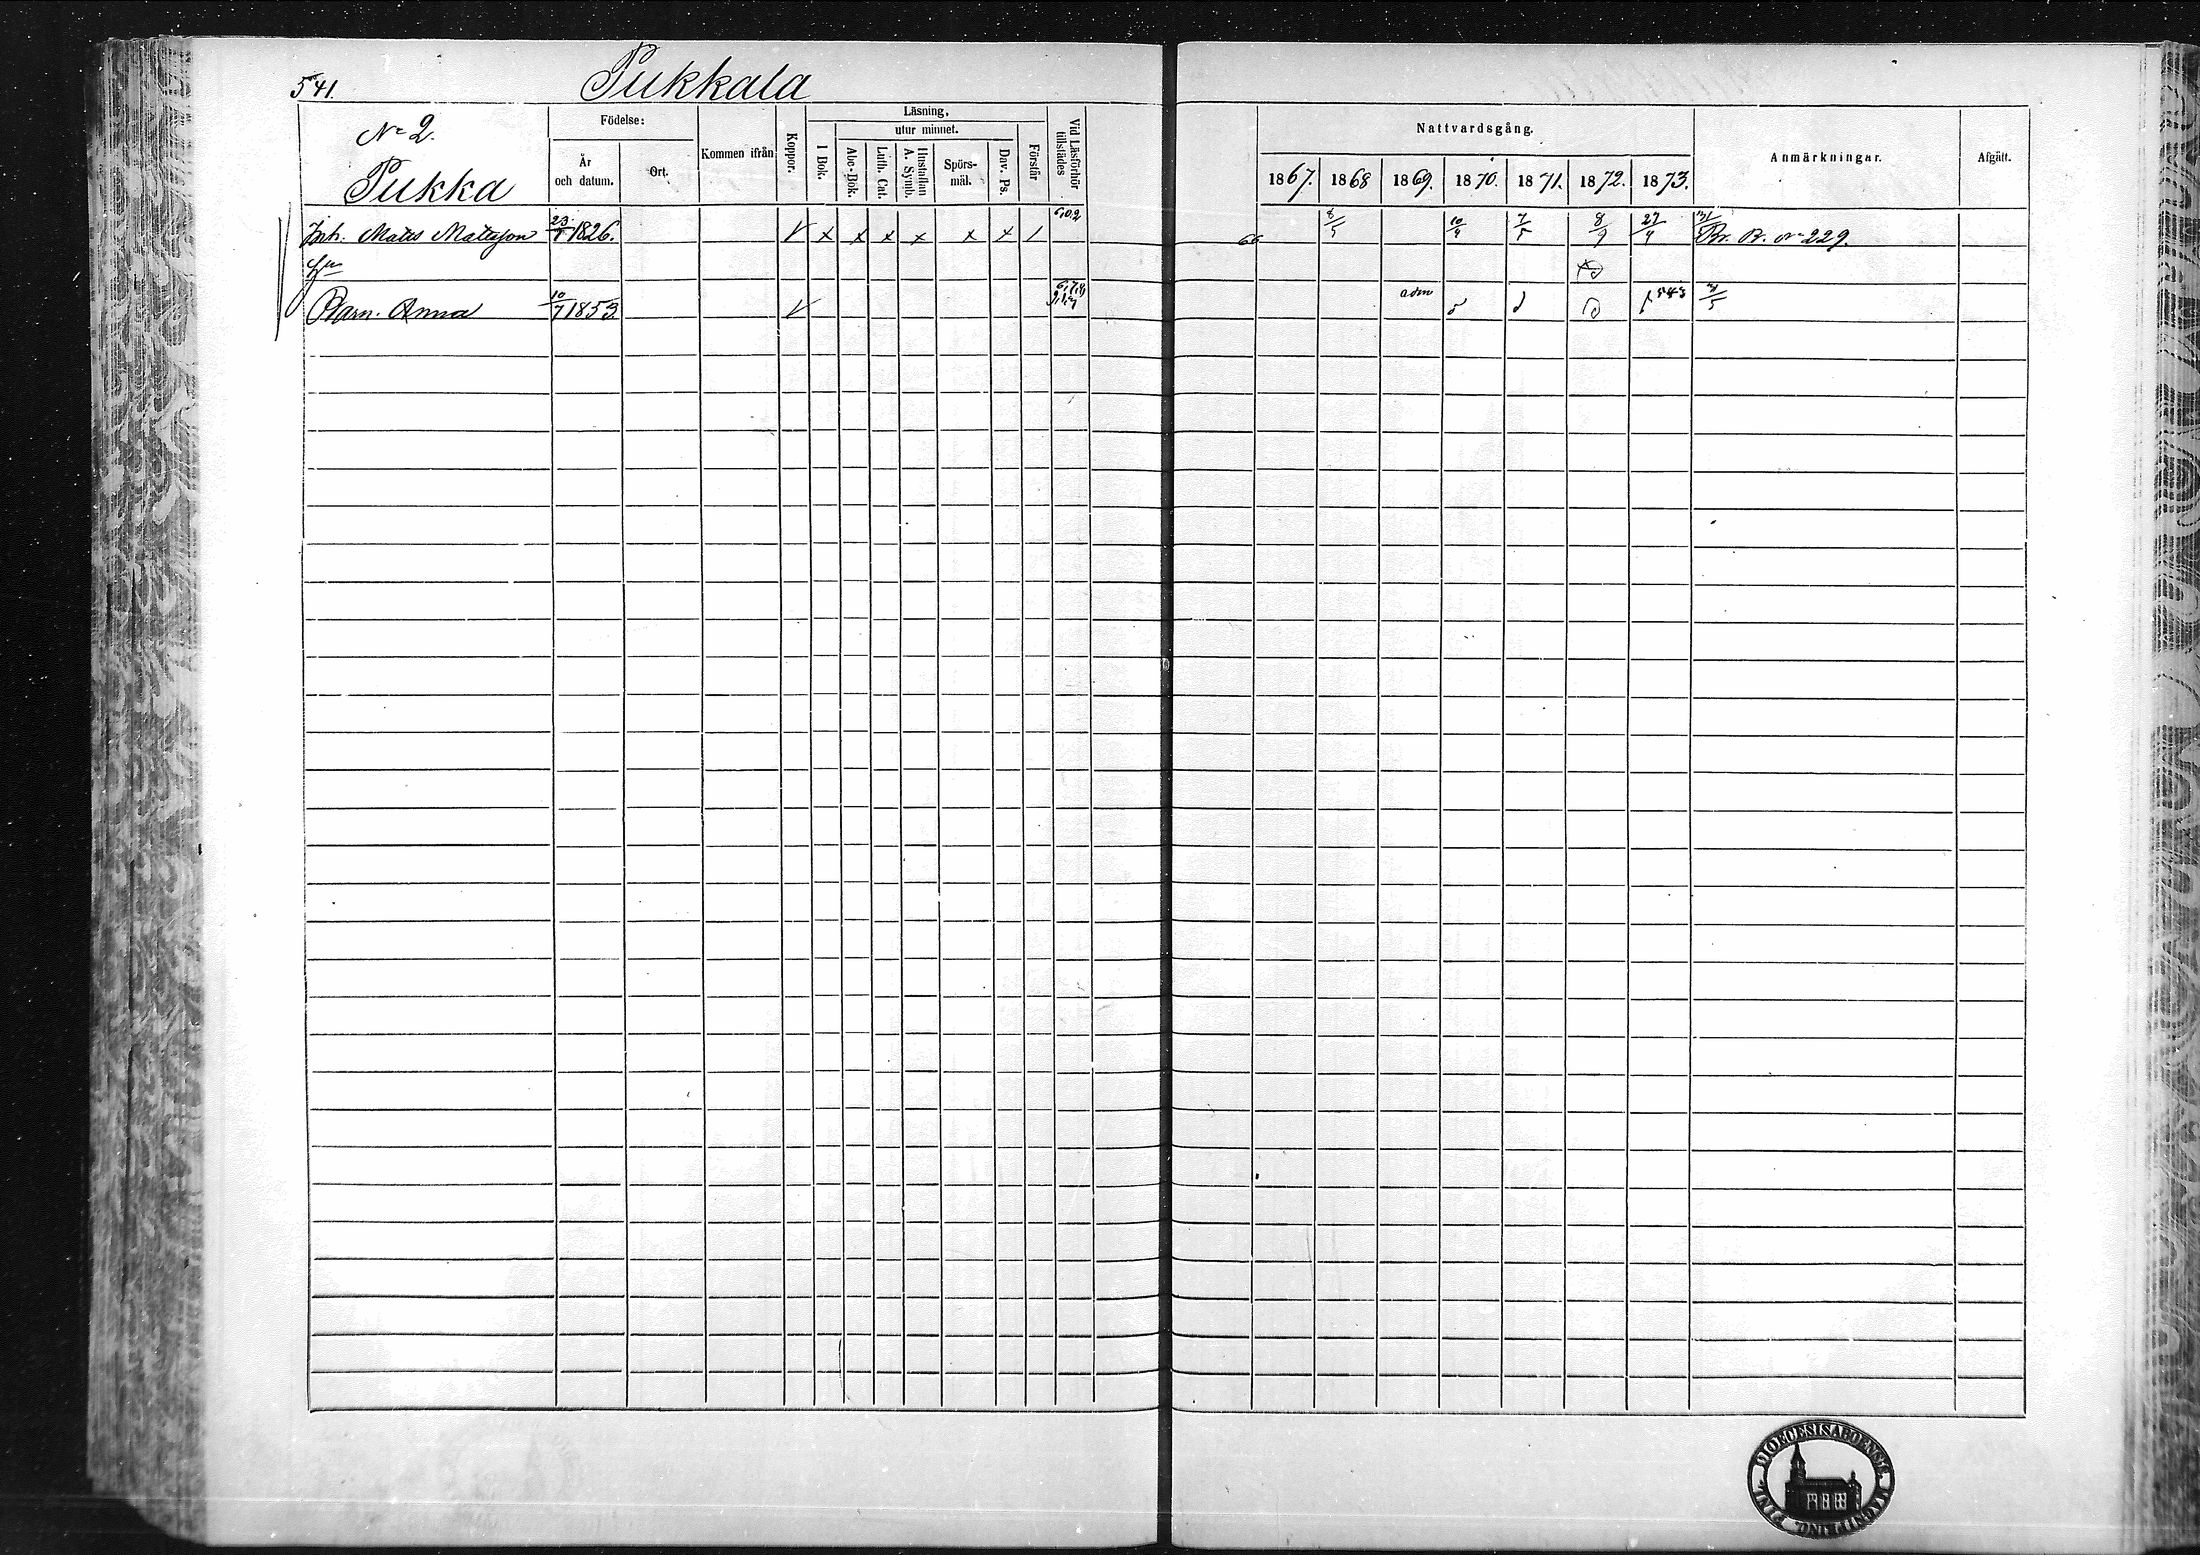 541. Pukkala
No 2.
Pukka
Födelse:
År och datum.
Ort.
Kommen ifrån
Koppor.
Läsning,
I Bok.
utur minnet.
Abc-Bok.
Luth. Cat.
Hustaflan A. Symb.
Spörs-mål.
Dav. Ps.
Förstår
Vid Läsförhör tillstädes
Nattvardsgång.
1867. 1868 1869. 1870. 1871. 1872. 1873.
Anmärkningar.
Afgått.
Inh. Matts Mattsson 23/7 1826. V x x x x x x 1 6,0,2 66 8/5 10/9 7/5 8/9 27/4 Br. B. No 229.
Barn. Anna 10/7 1853 V adm 543
DIOECESIS ABOENSIS MAGNI PRINC. FINL.